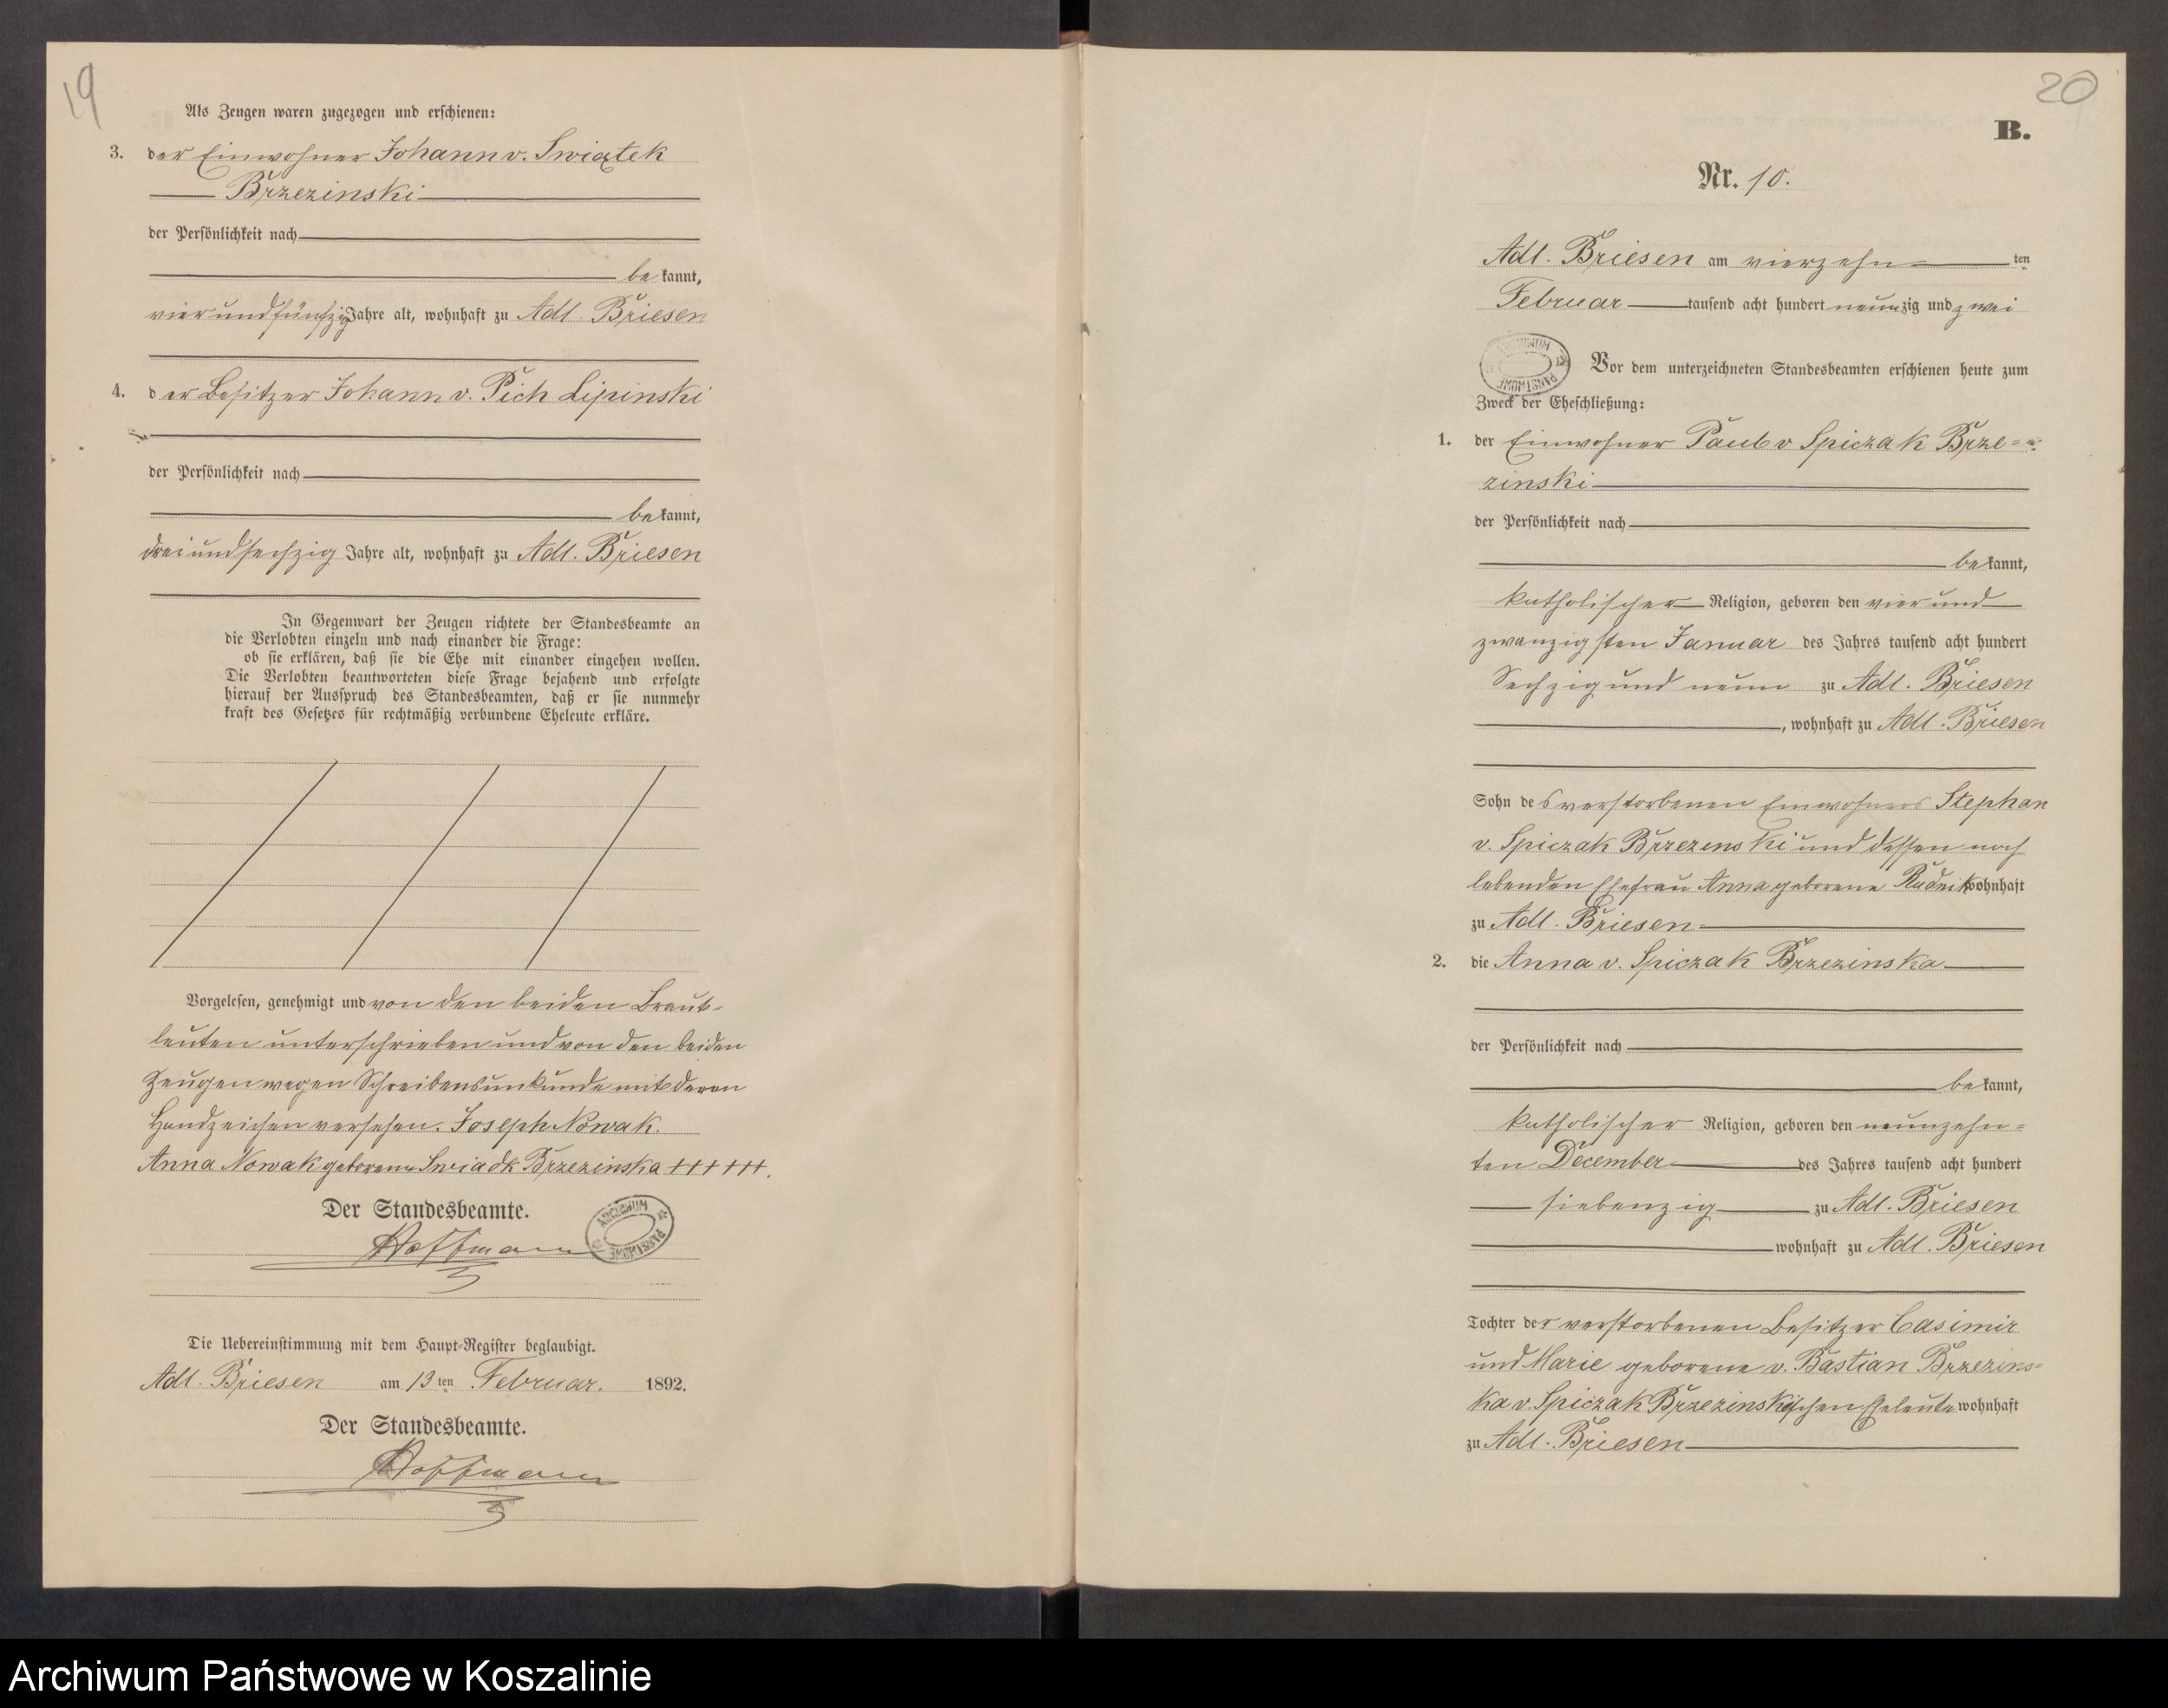 19
Als Zeugen waren zugezogen und erschienen:
3. der Einwohner Johann v. Swiątek
Brzezinski
der Persönlichkeit nach
bekannt,
vier und fünfzig Jahre alt, wohnhaft zu Adl. Briesen
4. der Besitzer Johann v. Pich Lipinski
der Persönlichkeit nach
bekannt,
drei und sechzig Jahre alt, wohnhaft zu Adl. Briesen
In Gegenwart der Zeugen richtete der Standesbeamte an
die Verlobten einzeln und nach einander die Frage:
ob sie erklären, daß sie die Ehe mit einander eingehen wollen.
Die Verlobten beantworteten diese Frage bejahend und erfolgte
hierauf der Ausspruch des Standesbeamten, daß er sie nunmehr
kraft des Gesetzes für rechtmäßig verbundene Eheleute erkläre.
Vorgelesen, genehmigt und von den beiden Braut-
leuten unterschrieben und von den beiden
Zeugen wegen Schreibensunkunde mit deren
Handzeichen versehen. Joseph Nowak.
Anna Nowak geborene Swiadk Brzezinska ++++++.
Der Standesbeamte.
Hoffmann
ARCHIWUM PAŃSTWOWE
Die Uebereinstimmung mit dem Haupt-Register beglaubigt.
Adl. Briesen am 13ten Februar. 1892.
Der Standesbeamte.
Hoffmann
20
B.
Nr. 10.
Adl. Briesen am vierzehn ten
Februar tausend acht hundert neunzig und zwei
ARCHIWUM PAŃSTWOWE
Vor dem unterzeichneten Standesbeamten erschienen heute zum
Zweck der Eheschließung:
1. der Einwohner Paul v Spiczak Brze=
zinski
der Persönlichkeit nach
bekannt,
katholischer Religion, geboren den vier und
zwanzigsten Januar des Jahres tausend acht hundert
Sechzig und neun zu Adl. Briesen
, wohnhaft zu Adl. Briesen
Sohn des verstorbenen Einwohners Stephan
v. Spiczak Brzezenski und dessen noch
lebenden Ehefrau Anna geborene Rudnik wohnhaft
zu Adl. Briesen
2. die Anna v. Spiczak Brzezinska
der Persönlichkeit nach
bekannt,
katholischer Religion, geboren den neunzehn=
ten December des Jahres tausend acht hundert
siebenzig zu Adl. Briesen
wohnhaft zu Adl. Briesen
Tochter der verstorbenen Besitzer Casimir
und Marie geborene v. Bastian Brzezins=
ka v. Spiczak Brzezinskischen Eheleute wohnhaft
zu Adl. Briesen
Archiwum Państwowe w Koszalinie